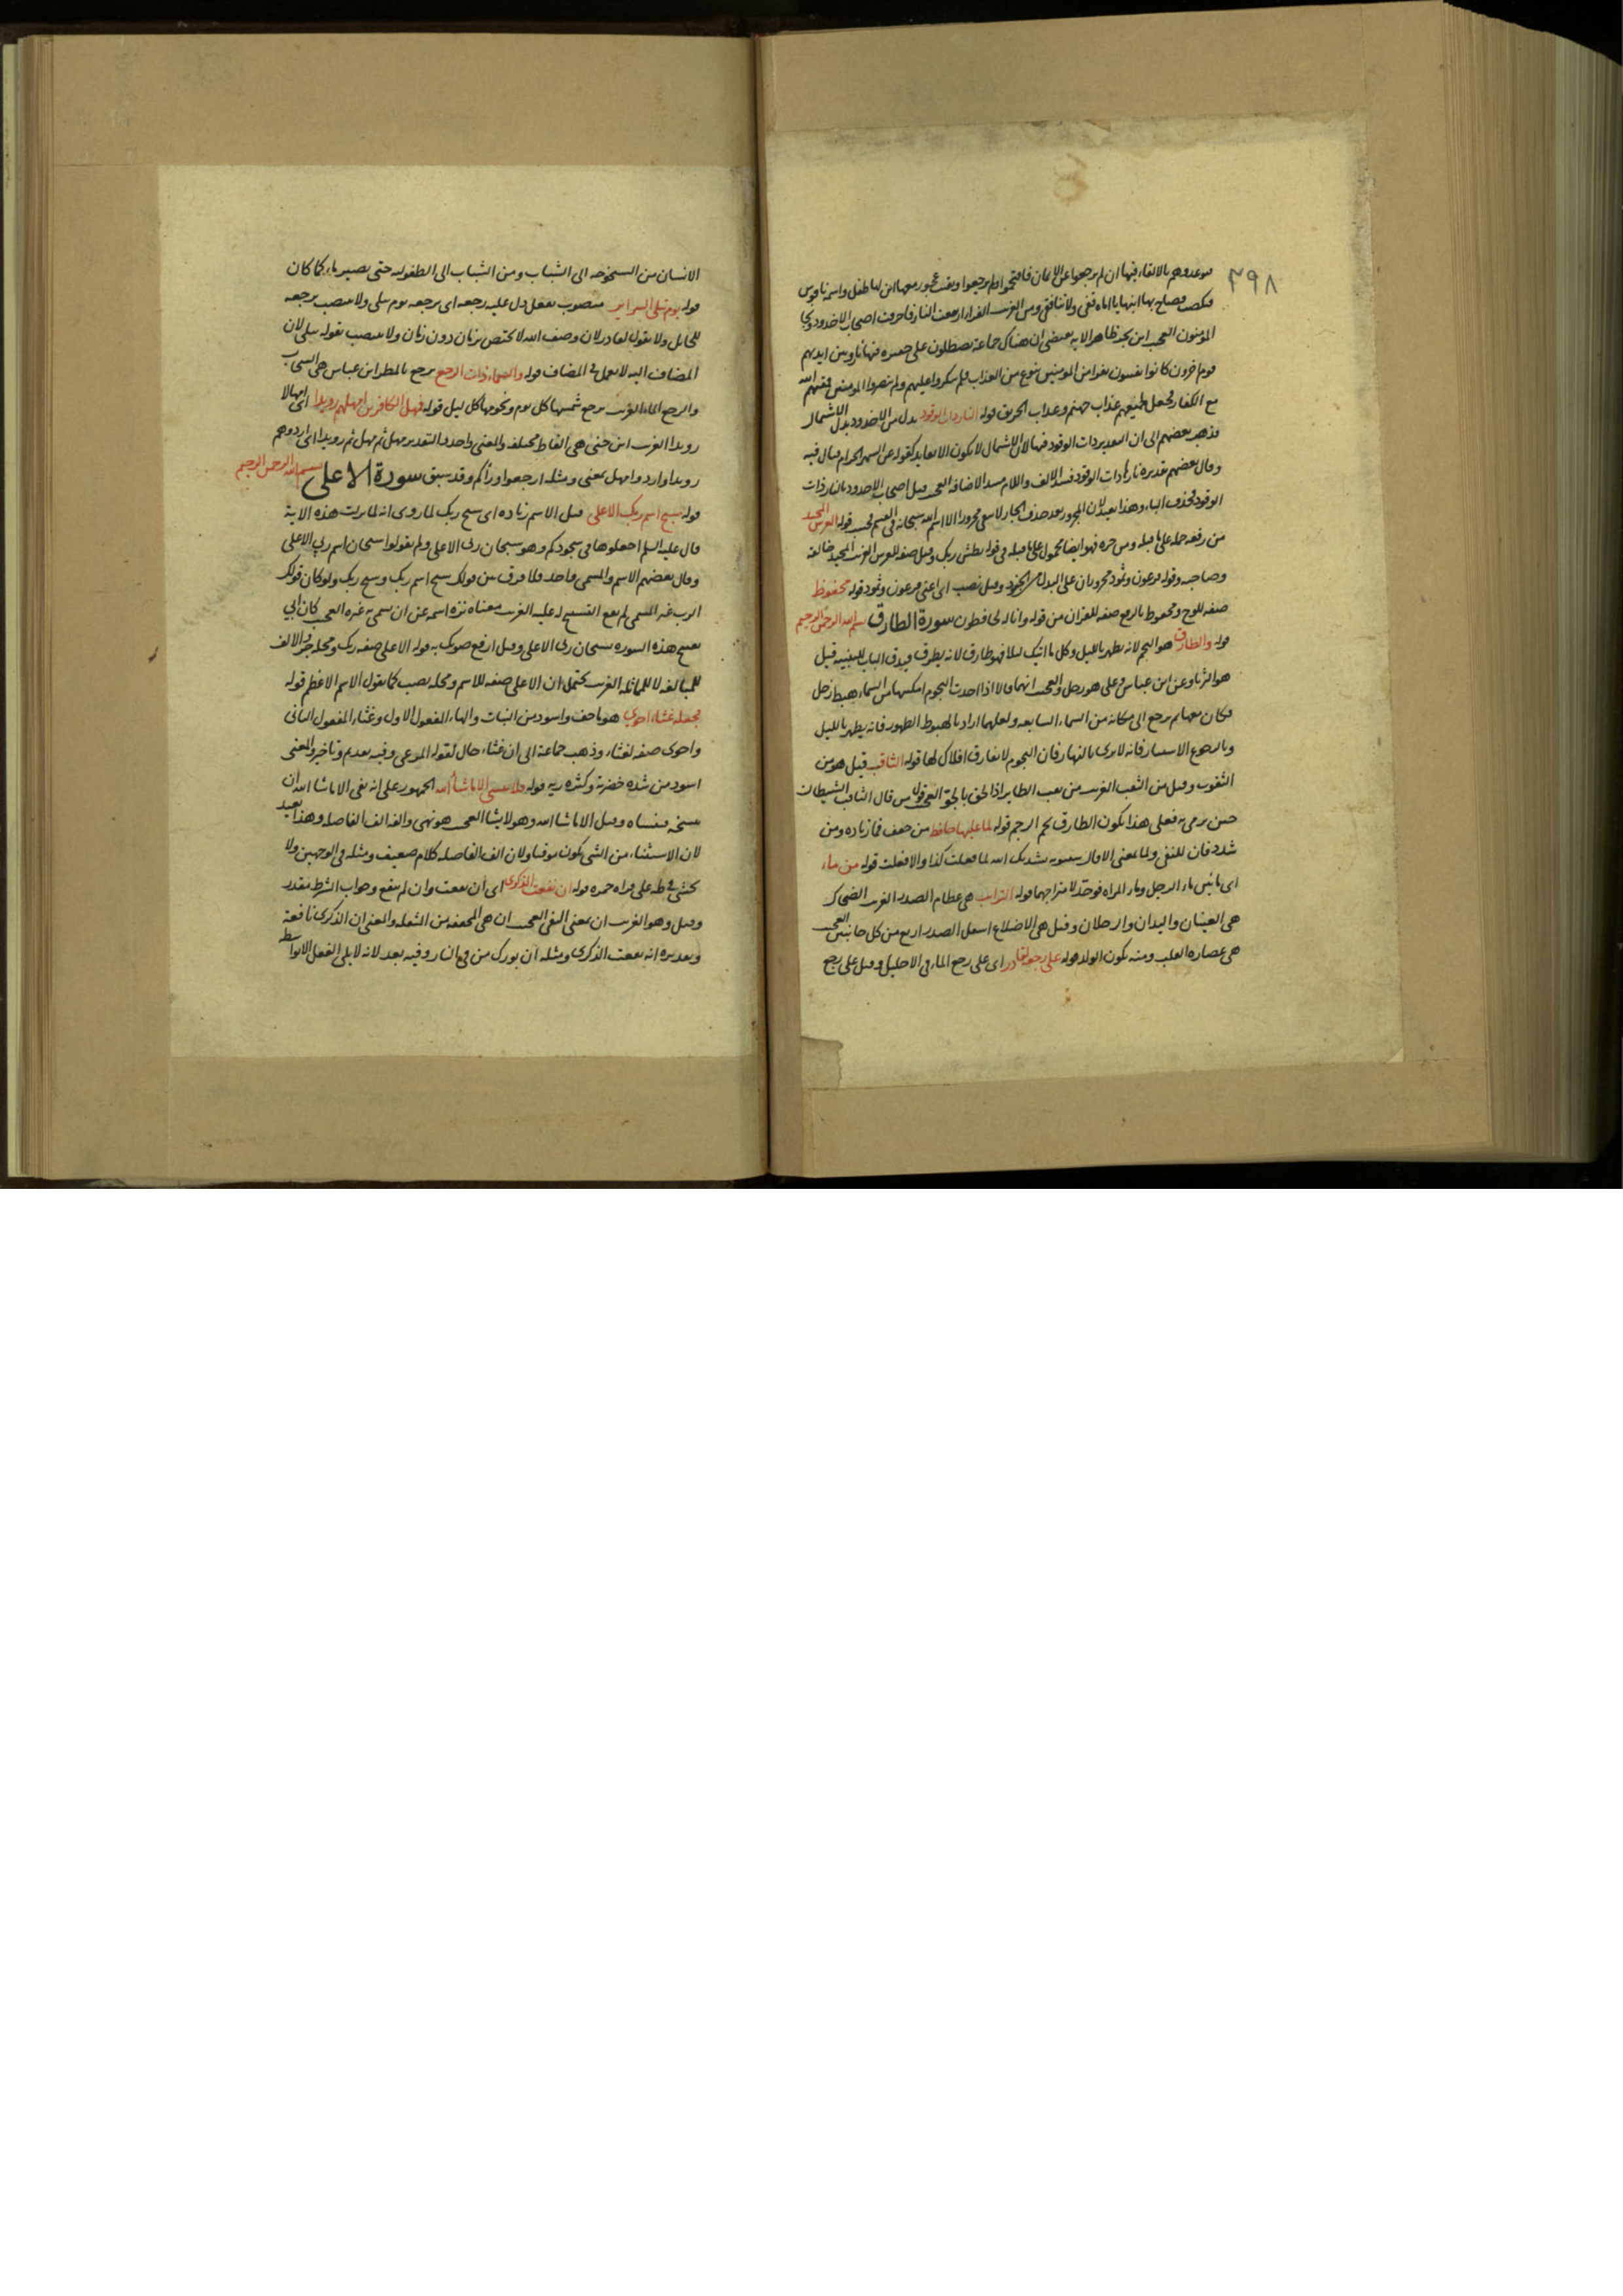 ٣٩٨
فوعدوهم بالالقاء فيها ان لم يرجعوا عن الايمان فاقتحموا ولم يرجعوا وبقيت عجوز معها ابن لها طفل
فنكصت فصاح بها ابنها يا اماه قفي ولا تنافقي ومن الغريب الفرا ارتفعت النار فاحرقت اصحاب الاخدود ونجا
المومنون العجب ابن بحر ظاهر الايه يقتضي ان هناك جماعة يصطلون على حفيره فيها نار وبين ايديهم
قوم اخرون كانوا يفتنون نفرا من المومنين بنوع من العذاب فلم ينكروا عليهم ولم ينصروا المومنين
مع الكفار فجعل لجميعهم عذاب جهنم وعذاب الحريق قوله النار ذات الوقود بدل من الاخدود بدل الاشتمال
فذهب بعضهم الى ان التقدير ذات الوقود فيها لان الاشتمال لا يكون الا بعايد كقوله عن الشهر الحرام قتال فيه
وقال بعضهم تقديره نارها ذات الوقود فسد الالف واللام مسد الاضافة العجب قتل اصحاب الاخدود بالنار ذات
الوقود فحذف الباء وهذا بعيد لان المجرور بعد حذف الجار لا يبقى مجرورا الا اسم الله سبحانه في القسم فحسب قوله العرش المجيد
من رفعه حمله على ما قبله ومن جره فهو ايضا محمول على ما قبله في قوله بطش ربك وقيل صفه للعرش الغريب المجيد خالقه
وصاحبه وقوله فرعون وثمود مجروران على البدل من الجنود وقيل نصب اى اعني فرعون وثمود قوله محفوظ
صفه للوح ومحفوظ بالرفع صفه للقران من قوله وانا له لحافظون سورة الطارق بسم الله الرحمن الرحيم
قوله والطارق هو النجم لانه يظهر بالليل وكل ما اتيك ليلا فهو طارق لانه يطرق فيدق الباب للتنبيه قيل
هو الثريا وعن ابن عباس وعلى هو زحل والعجب انهما قالا اذا اخذت النجوم امكنتها من السماء هبط زحل
فكان معها ثم يرجع الى مكانه من السماء السابعه ولعلهما ارادا بالهبوط الظهور فانه يظهر بالليل
وبالرجوع الاستتار فانه لا يرى بالنهار فان النجوم لا تفارق افلاك لها قوله الثاقب قيل هو من
الثقوب وقيل من الثقب الغريب من ثقب الطاير اذا لحق بالجو العجب قول من قال الثاقب الشيطان
حين يرمى به فعلى هذا يكون الطارق نجم الرجم قوله لما عليها حافظ من خفف فما زياده ومن
شدد فان للنفي ولما بمعنى الا قال سيبويه نشدتك الله لما فعلت كذا والا فعلت قوله من ماء
اى مائين ماء الرجل وماء المراه فوحد لامتزاجهما قوله الترائب هي عظام الصدر الغريب الضحاك
هي العينان واليدان والرجلان وقيل هي الاضلاع اسفل الصدر اربع من كل جانبين العجب
هي عصاره القلب ومنه يكون الولد قوله على رجعه لقادر اى على رجع الماء في الاحليل وقيل على رجع
الانسان من الشيخوخه الى الشباب ومن الشباب الى الطفوليه حتى يصير ماء كما كان
قوله يوم تبلى السرائر منصوب بفعل دل عليه رجعه اى يرجعه يوم تبلى ولا ينتصب برجعه
للحايل ولا بقوله لقادر لان وصف الله لا يختص بزمان دون زمان ولا ينتصب بقوله تبلى لان
المضاف اليه لا يعمل في المضاف قوله والسماء ذات الرجع يرجع بالمطر ابن عباس هي السحاب
والرجع الماء الغريب يرجع شمسها كل يوم ونجومها كل ليل قوله فمهل الكافرين امهلهم رويدا اى امهالا
رويدا الغريب ابن جني هي الفاظ مختلفه والمعنى واحد والتقدير مهل ثم مهل ثم رويدا اى اردوهم
رويدا وارد وامهل بمعنى ومثله ارجعوا وراكم وقد سبق سورة الاعلى بسم الله الرحمن الرحيم
قوله سبح اسم ربك الاعلى قيل الاسم زياده اى سبح ربك لما روى انه لما نزلت هذه الاية
قال عليه السلم اجعلوها في سجودكم وهو سبحان ربي الاعلى ولم يقولوا سبحان اسم ربي الاعلى
وقال بعضهم الاسم والمسمى واحد فلا فرق بين قولك سبح اسم ربك وسبح ربك ولو كان قولك
الرب غير المسمى لم يقع التسبيح له عليه الغريب معناه نزه اسمه عن ان يسمى به غيره العجب كان ابي
يفتتح هذه السوره سبحان ربي الاعلى وقيل ارفع صوتك به قوله الاعلى صفه ربك ومحله جر والالف
للمبالغه لا للمماثله الغريب يحتمل ان الاعلى صفه للاسم ومحله نصب كما يقول الاسم الاعظم قوله
فجعله غثاء احوى هو ما جف واسود من النبات والهاء المفعول الاول وغثاء المفعول الثاني
واحوى صفه لغثاء وذهب جماعة الى ان غثاء حال لقوله المرعى وفيه تقديم وتاخير والمعنى
اسود من شده خضرته وكثره ريه قوله فلا تنسى الا ما شاء الله الجمهور على انه نفى الا ما شاء الله ان
ينسخه فتنساه وقيل الا ما شاء الله وهو لا يشا العجب هو نهى والفه الف الفاصله وهذا بعيد
لان الاستثناء من النهي يكون موقتا ولان الف الفاصله كلام ضعيف ومثله في الوجهين ولا
تخشى في طه على قراه حمزه قوله ان نفعت الذكرى اى ان نفعت وان لم تنفع وجواب الشرط مقدر
وقيل وهو الغريب ان بمعنى النفي العجب ان هي المخففه من الثقيله والمعنى ان الذكرى نافعة
وتقديره انه نفعت الذكرى ومثله ان بورك من في النار وفيه بعد لانه لا يلي الفعل الا بواسطه